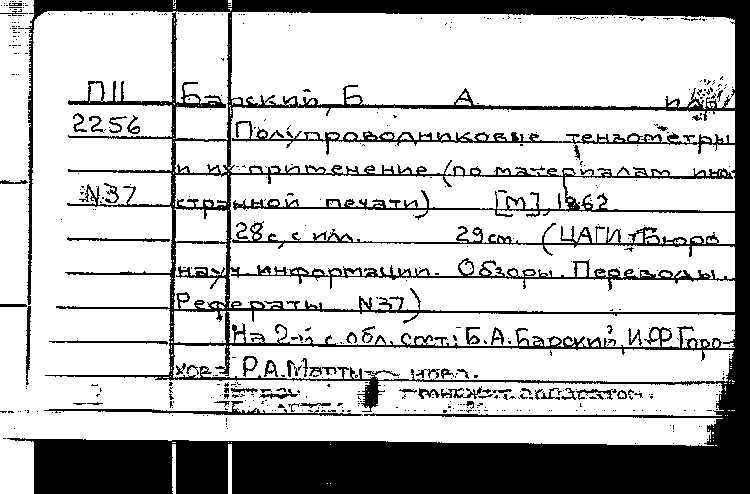 П11 Барский, Б А и др
2256 Полупроводниковые тензометры
и их применение (по материалам ино-
N37 странной печати) [М], 1962
28с, с илл. 29см. (ЦАГИ, Бюро
науч информации. Обзоры. Переводы.
Рефераты N37)
На 2-й с обл. сост.: Б.А.Барский, И.Ф Горо-
хов Р.А.
аппаратом.